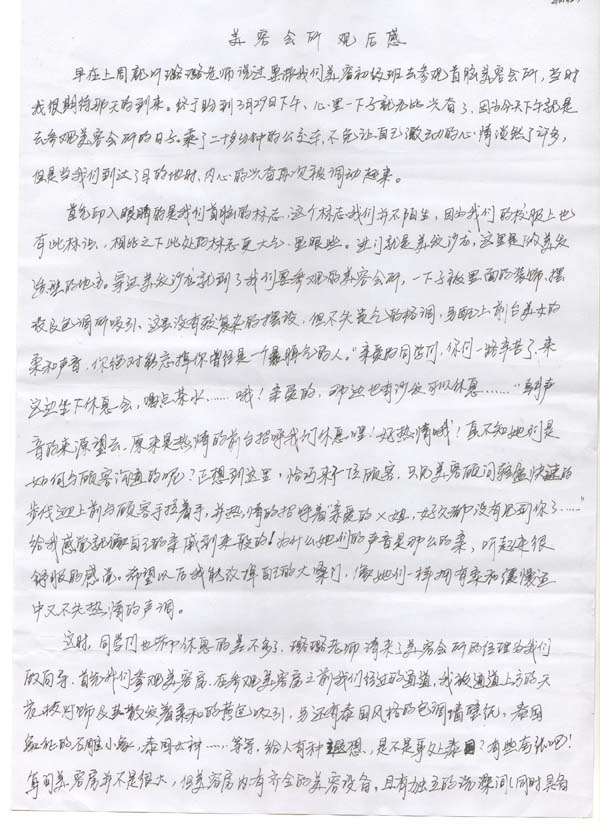 美容会所 观后感
早在上周就听璐璐老师说过要带我们美容初级班去参观首脑美容会所，当时
我很期待那天的到来。终于盼到3月29日下午，心里一下子就为此兴奋了，因为今天下午就是
去参观美容会所的日子。乘了二十多分钟的公交车，不免让自己激动的心情淡然了许多，
但是当我们到达了目的地时，内心的兴奋再次被调动起来。
首先印入眼睛的是我们首脑的标志，这个标志我们并不陌生，因为我们的校服上也
有此标识，相比之下此处的标志更大气、显眼些。进门就是美发沙龙，这里是做美发
造型的地方。穿过美发沙龙就到了我们要参观的美容会所，一下子被里面的装饰、摆
放及色调所吸引，这里没有较复杂的摆设，但不失贵气的格调，再配上前台美女的
柔和声音，你绝对能忘掉你曾经是一个暴脾气的人。"亲爱的同学们，你们一路辛苦了，来
这边坐下休息一会，喝点茶水……哦！亲爱的，那边也有沙发可以休息……"朝声
音的来源望去，原来是热情的前台招呼我们休息哩！好热情哦！真不知她们是
如何与顾客沟通的呢？正想到这里，恰巧来了位顾客，只见美容顾问轻盈快速的
步伐迎上前与顾客手拉着手，并热情的招呼着"亲爱的X姐，好久都没有见到你了……"
给我感觉就像自己的亲戚到来般的！为什么她们的声音是那么的柔，听起来很
舒服的感觉。希望以后我能改掉自己的大嗓门，像她们一样拥有柔和缓慢适
中又不失热情的声调。
这时，同学们也都休息的差不多了，璐璐老师请来了美容会所的经理为我们
做向导，首先我们参观美容房，在参观美容房之前我们经过的通道，我被通道上方的天
花板灯饰及散发着柔和的黄色吸引，另还有泰国风格的色调墙壁纸，泰国
的石雕小象，泰国女神……等等，给人有种遐想，是不是身处泰国？有些夸张吧！
每间美容房并不是很大，但美容房内有齐全的美容设备，且有独立的洗澡间（同时具备